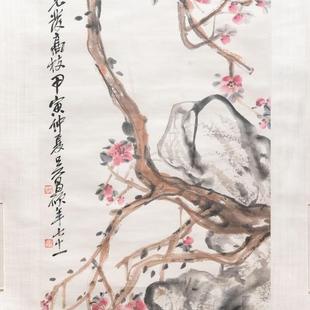 先發高枝甲寅仲夏吳昌碩年七十一